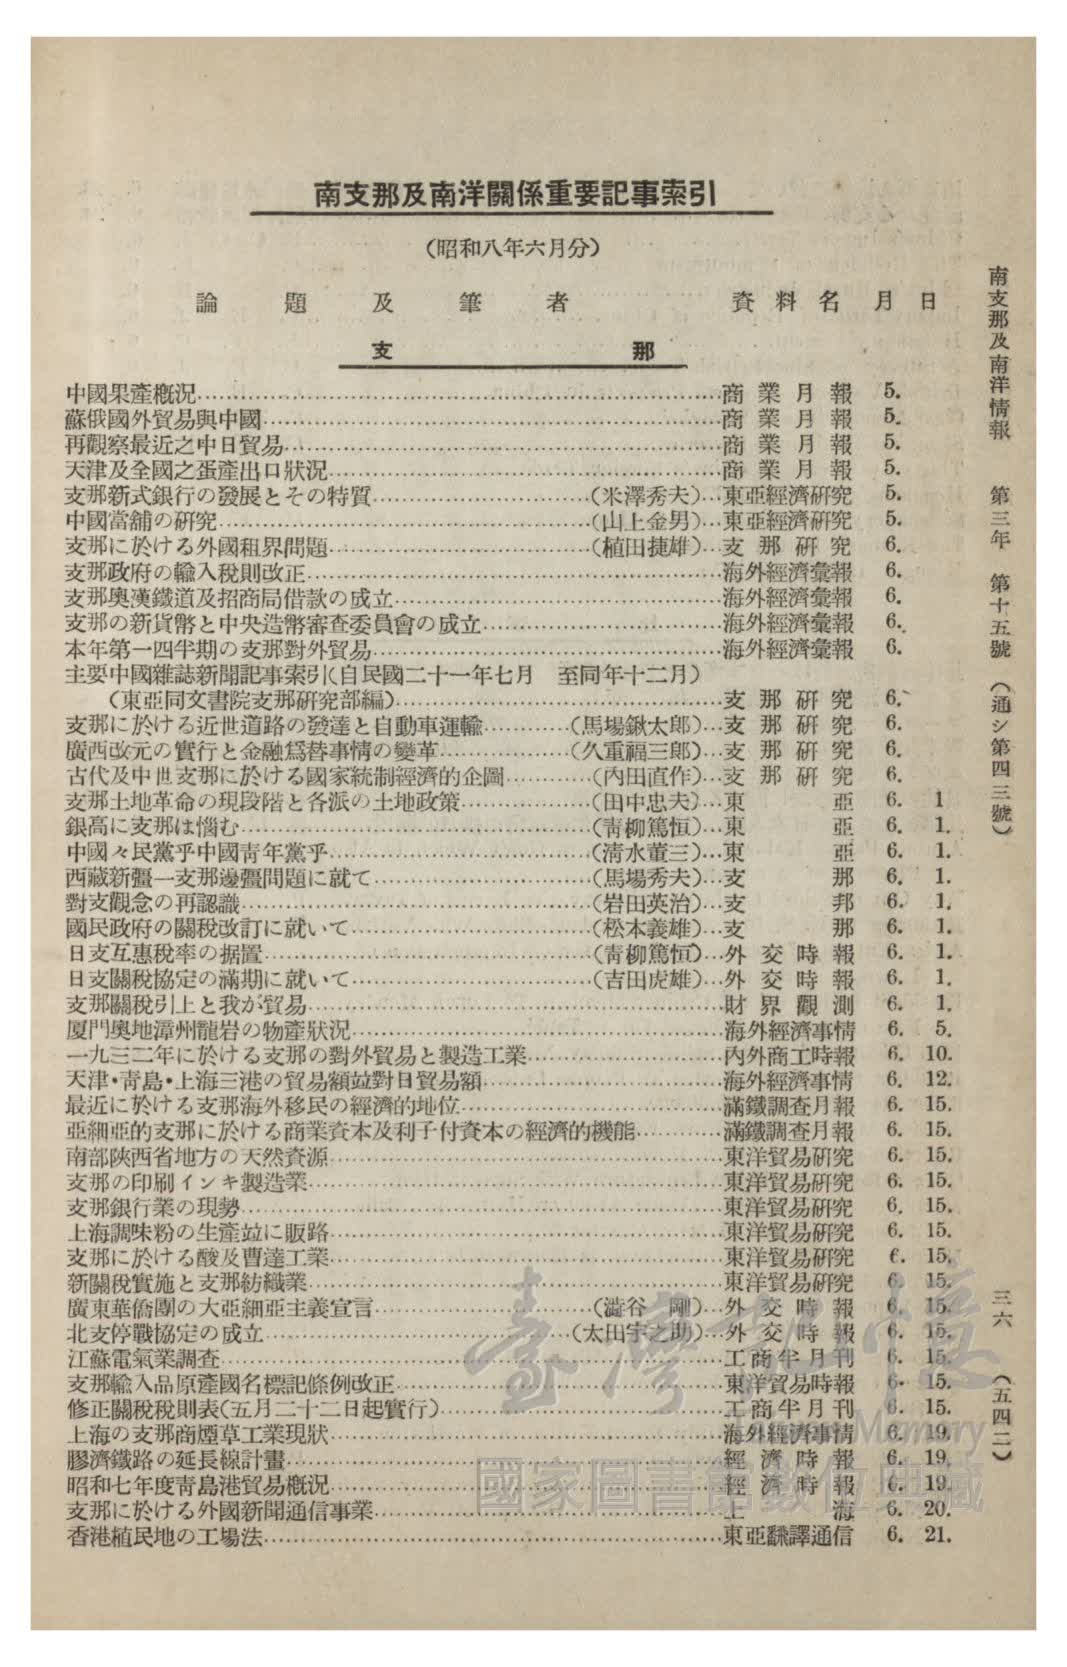 南支那及南洋關係重要記事索引
（昭和八年六月分）
論題及筆者 資料名 月 日
支那
中國果產概況 商業月報 5.
蘇俄國外貿易與中國 商業月報 5.
再觀察最近之中日貿易 商業月報 5.
天津及全國之蛋產出口狀況 商業月報 5.
支那新式銀行の發展とその特質（米澤秀夫） 東亞經濟硏究 5.
中國當舖の硏究（山上金男） 東亞經濟硏究 5.
支那に於ける外國租界問題（植田捷雄） 支那硏究 6.
支那政府の輸入稅則改正 海外經濟彙報 6.
支那奧漢鐵道及招商局借款の成立 海外經濟彙報 6.
支那の新貨幣と中央造幣審查委員會の成立 海外經濟彙報 6.
本年第一四半期の支那對外貿易 海外經濟彙報 6.
主要中國雜誌新聞記事索引（自民國二十一年七月　至同年十二月）
（東亞同文書院支那硏究部編） 支那硏究 6.
支那に於ける近世道路の發達と自動車運輸（馬場鍬太郎） 支那硏究 6.
廣西改元の實行と金融爲替事情の變革（久重福三郎） 支那硏究 6.
古代及中世支那に於ける國家統制經濟的企圖（內田直作） 支那硏究 6.
支那土地革命の現段階と各派の土地政策（田中忠夫） 東亞 6. 1
銀高に支那は惱む（靑柳篤恒） 東亞 6. 1.
中國々民黨乎中國靑年黨乎（淸水董三） 東亞 6. 1.
西藏新疆一支那邊疆問題に就て（馬場秀夫） 支那 6. 1.
對支觀念の再認識（岩田英治） 支邦 6. 1.
國民政府の關稅改訂に就いて（松本義雄） 支那 6. 1.
日支互惠稅率の据置（靑柳篤恒） 外交時報 6. 1.
日支關稅協定の滿期に就いて（吉田虎雄） 外交時報 6. 1.
支那關稅引上と我が貿易 財界觀測 6. 1.
厦門奧地漳州龍岩の物產狀況 海外經濟事情 6. 5.
一九三二年に於ける支那の對外貿易と製造工業 內外商工時報 6. 10.
天津・靑島・上海三港の貿易額竝對日貿易額 海外經濟事情 6. 12.
最近に於ける支那海外移民の經濟的地位 滿鐵調查月報 6. 15.
亞細亞的支那に於ける商業資本及利子付資本の經濟的機能 滿鐵調查月報 6. 15.
南部陜西省地方の天然資源 東洋貿易硏究 6. 15.
支那の印刷インキ製造業 東洋貿易硏究 6. 15.
支那銀行業の現勢 東洋貿易硏究 6. 15.
上海調味粉の生產竝に販路 東洋貿易硏究 6. 15.
支那に於ける酸及曹達工業 東洋貿易硏究 6. 15.
新關稅實施と支那紡織業 東洋貿易硏究 6. 15.
廣東華僑團の大亞細亞主義宣言（澁谷　剛） 外交時報 6. 15.
北支停戰協定の成立（太田宇之助） 外交時報 6. 15.
江蘇電氣業調查 工商半月刊 6. 15.
支那輸入品原產國名標記條例改正 東洋貿易時報 6. 15.
修正關稅稅則表（五月二十二日起實行） 工商半月刊 6. 15.
上海の支那商煙草工業現狀 海外經濟事情 6. 19.
膠濟鐵路の延長線計畫 經濟時報 6. 19.
昭和七年度靑島港貿易槪況 經濟時報 6. 19.
支那に於ける外國新聞通信事業 上海 6. 20.
香港植民地の工場法 東亞飜譯通信 6. 21.
南支那及南洋情報　第三年　第十五號（通シ第四三號）
三六（五四二）
臺灣記憶
Taiwan Memory
國家圖書館數位典藏